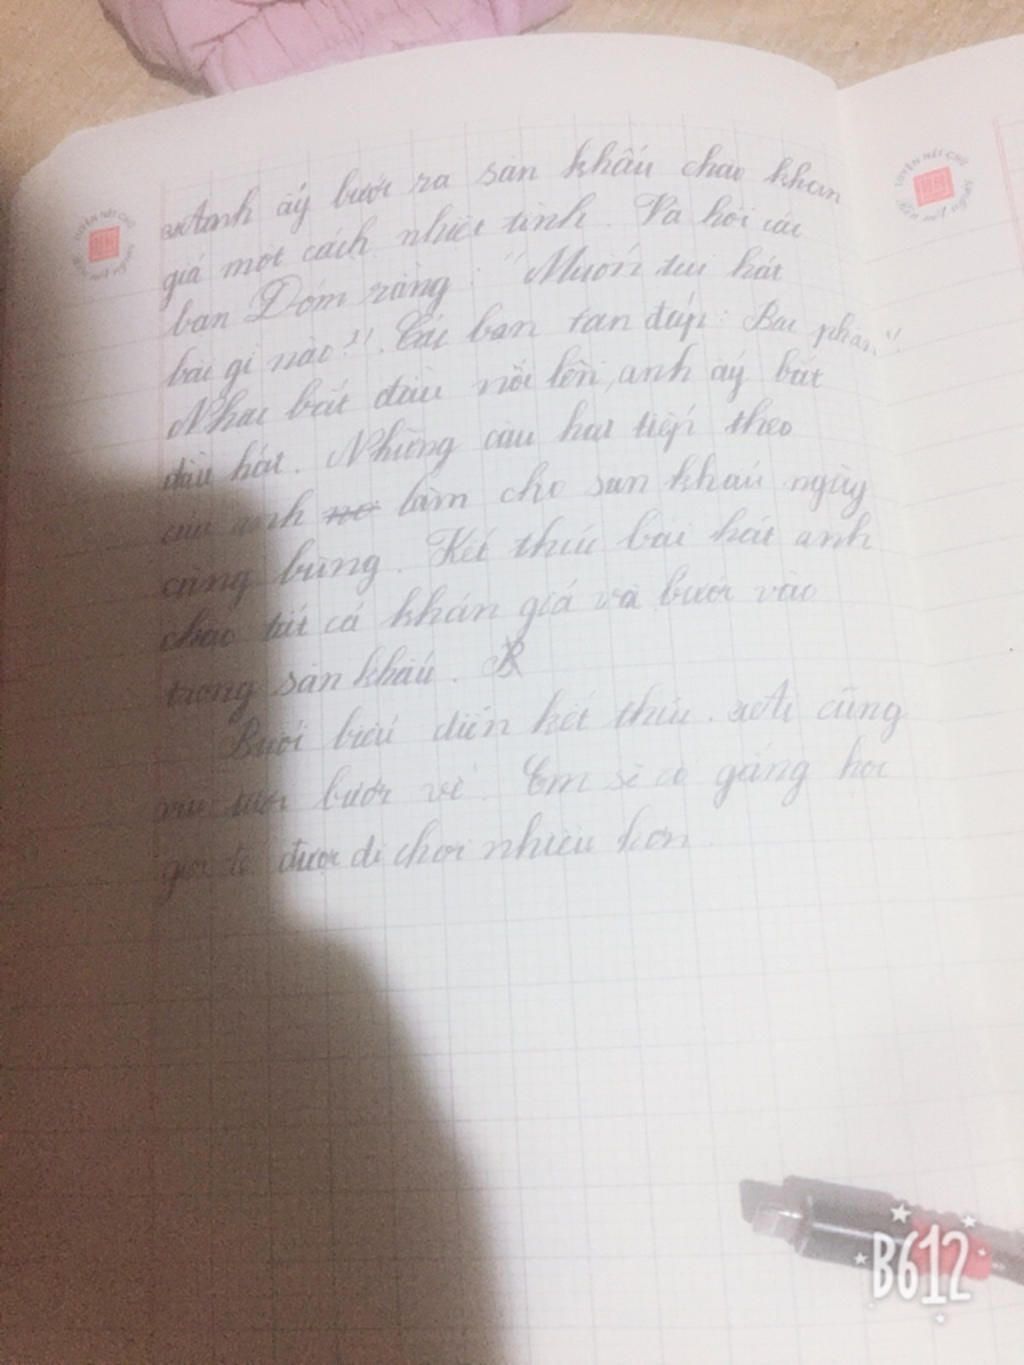 Anh ấy bước ra sân khấu chào khán
giả một cách nhiệt tình. Và hỏi các
bạn Đóm rằng: "Muốn tui hát
bài gì nào?". Các bạn fan đáp: Bạc phận".
Nhạc bắt đầu nổi lên, anh ấy bắt
đầu hát. Những câu hát tiếp theo
của anh làm cho sân khấu ngày
càng bùng. Kết thúc bài hát anh
chào tất cả khán giả và bước vào
trong sân khấu.
Buổi biểu diễn kết thúc. Ai cũng
vui tươi bước về. Em sẽ cố gắng học
giỏi để được đi chơi nhiều hơn
LUYỆN NÉT CHỮ
RÈN NẾT NGƯỜI
LUYỆN NÉT CHỮ
RÈN NẾT NGƯỜI
B612